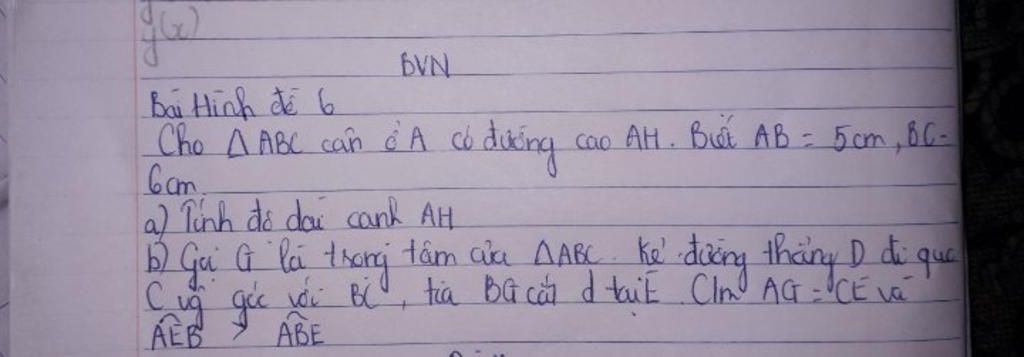 y(x)
BVN
Bài Hình đề 6
Cho △ABC cân ở A có đường cao AH. Biết AB = 5cm, BC =
6cm.
a) Tính độ dài cạnh AH
b) Gọi G là trọng tâm của △ABC. Kẻ đường thẳng D đi qua
C vg góc với BC, tia BG cắt d tại E. Cm AG = CE và
AÊB > AB̂E